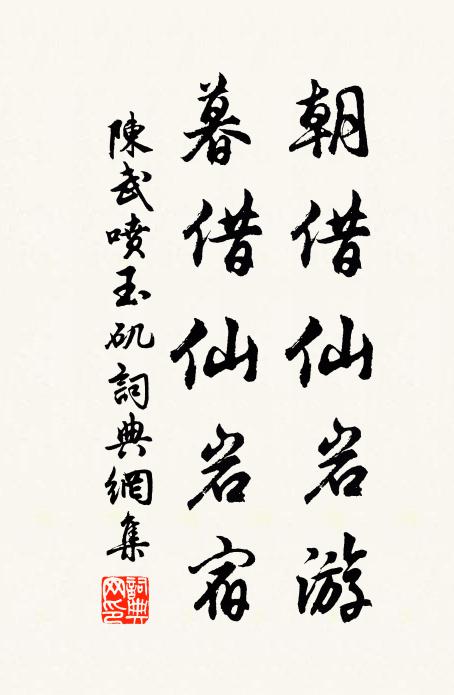 朝借仙岩游
暮借仙岩宿
陳武噴玉矶詞典網集
詞典网印